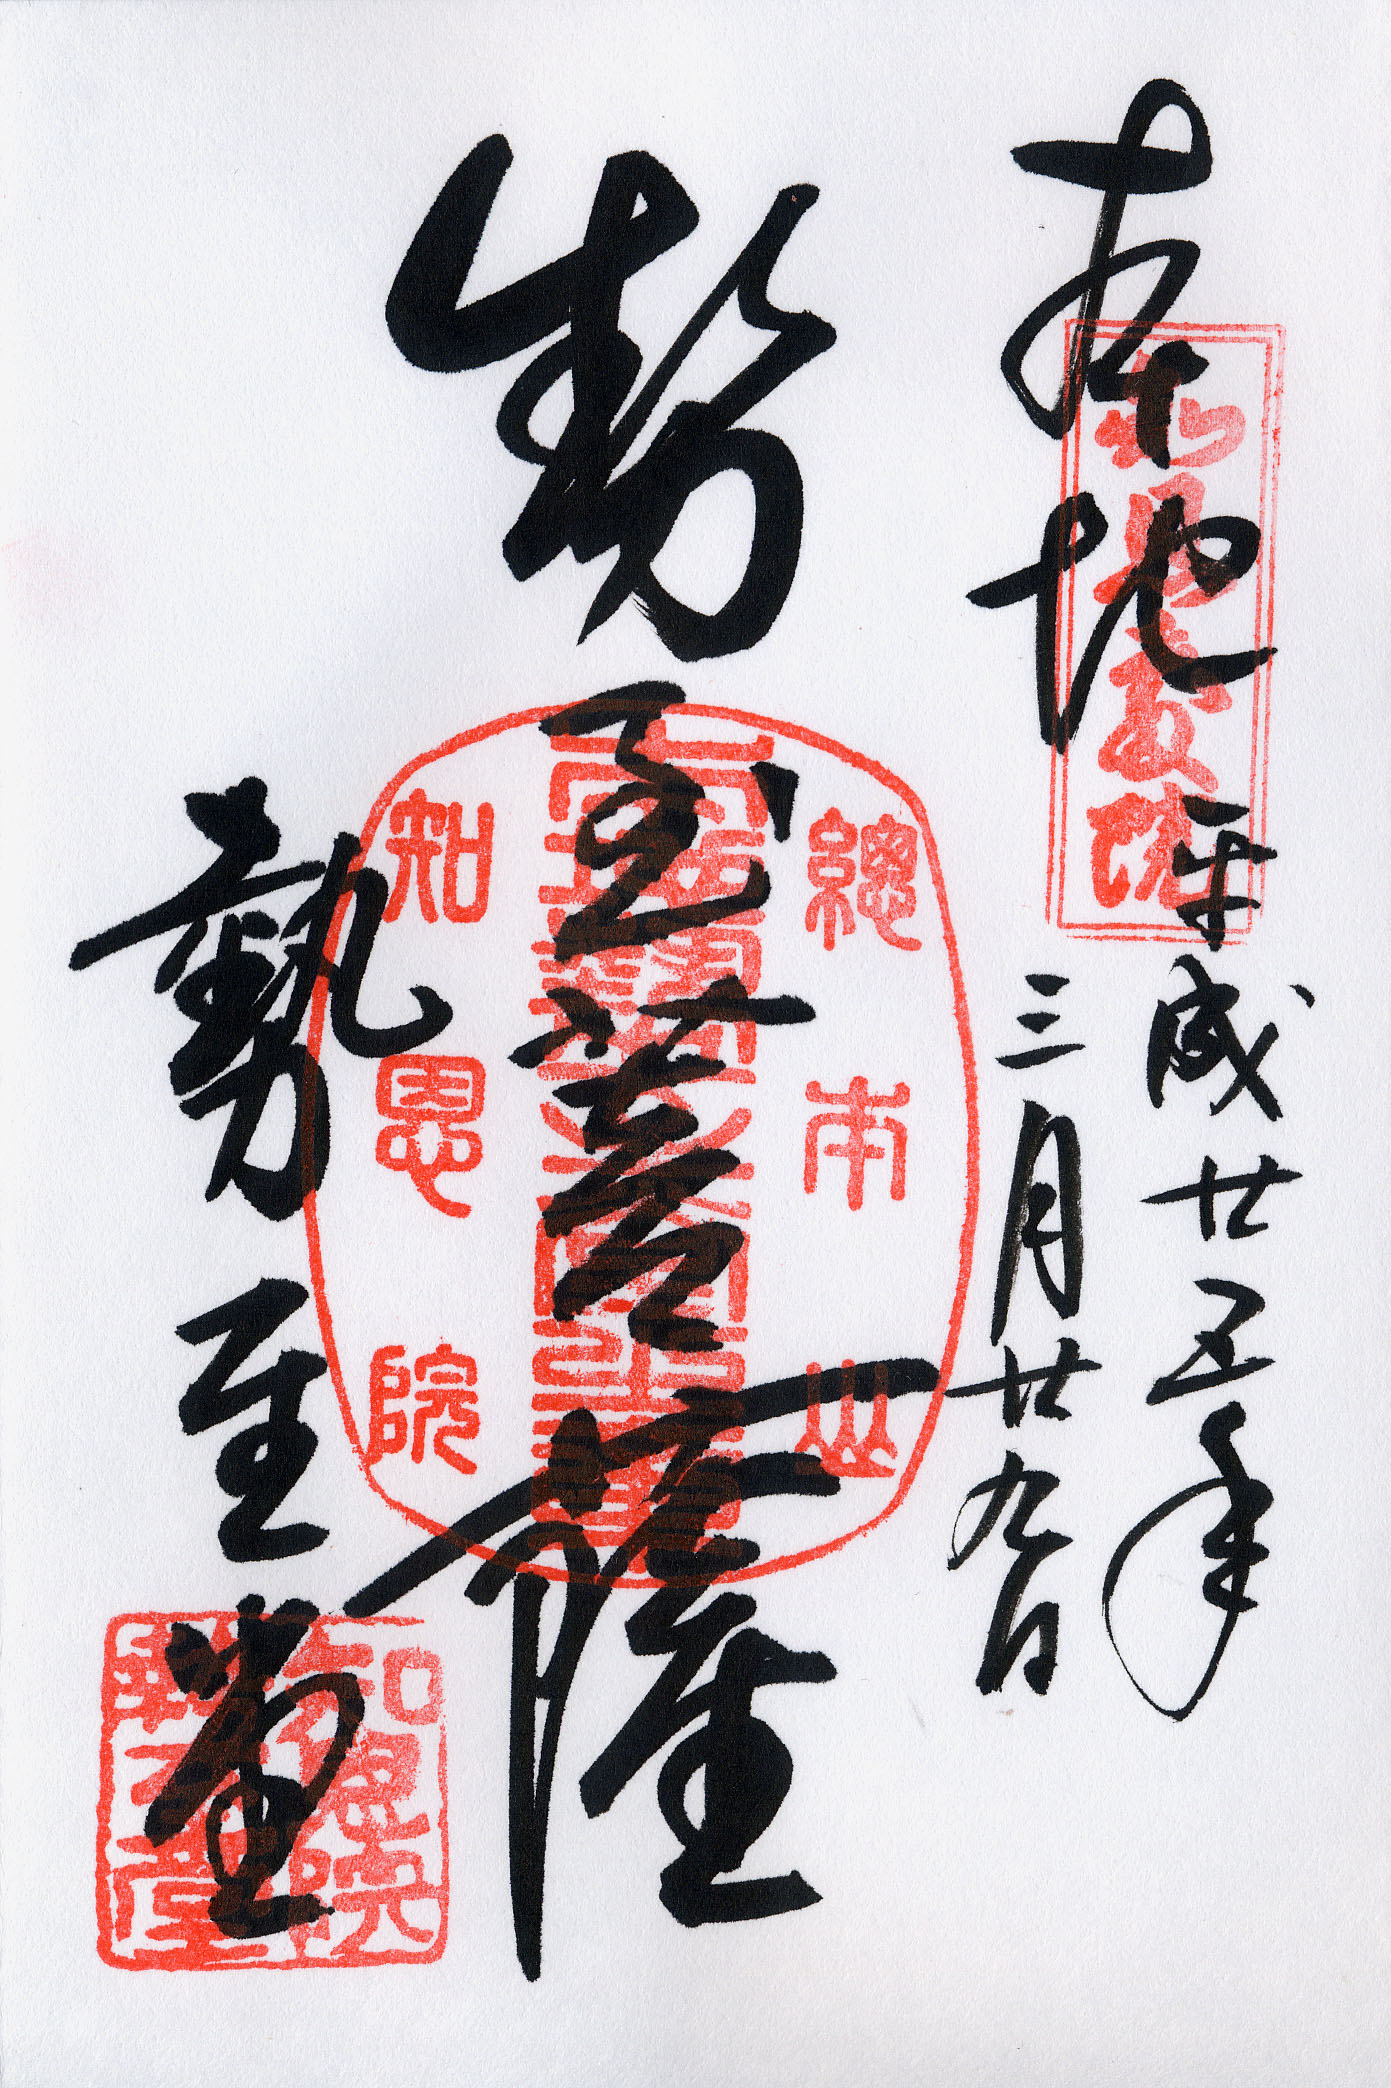 本地
平成廿五年
三月廿九日
勢至菩薩
勢至堂
總本山
知恩院
知恩院
勢至堂